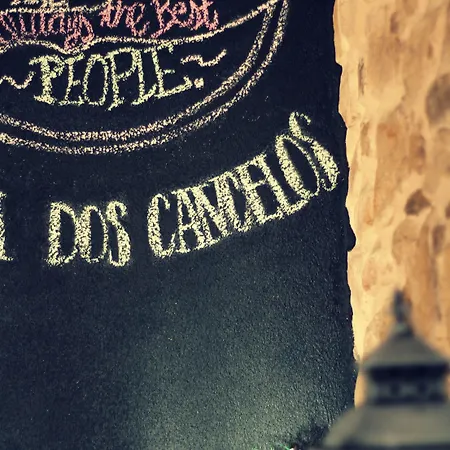 the Best
~PEOPLE.~
DOS CANCELOS